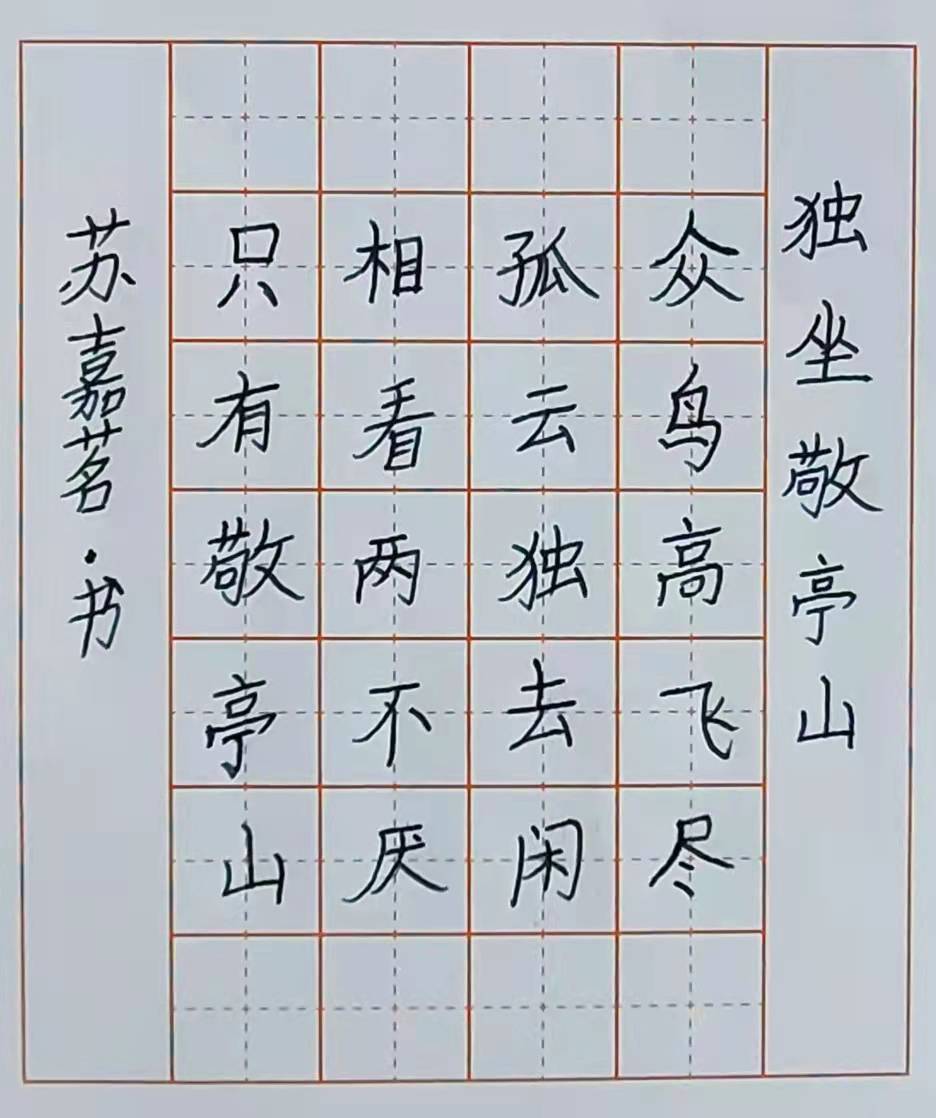 独坐敬亭山
众鸟高飞尽
孤云独去闲
相看两不厌
只有敬亭山
苏嘉茗·书